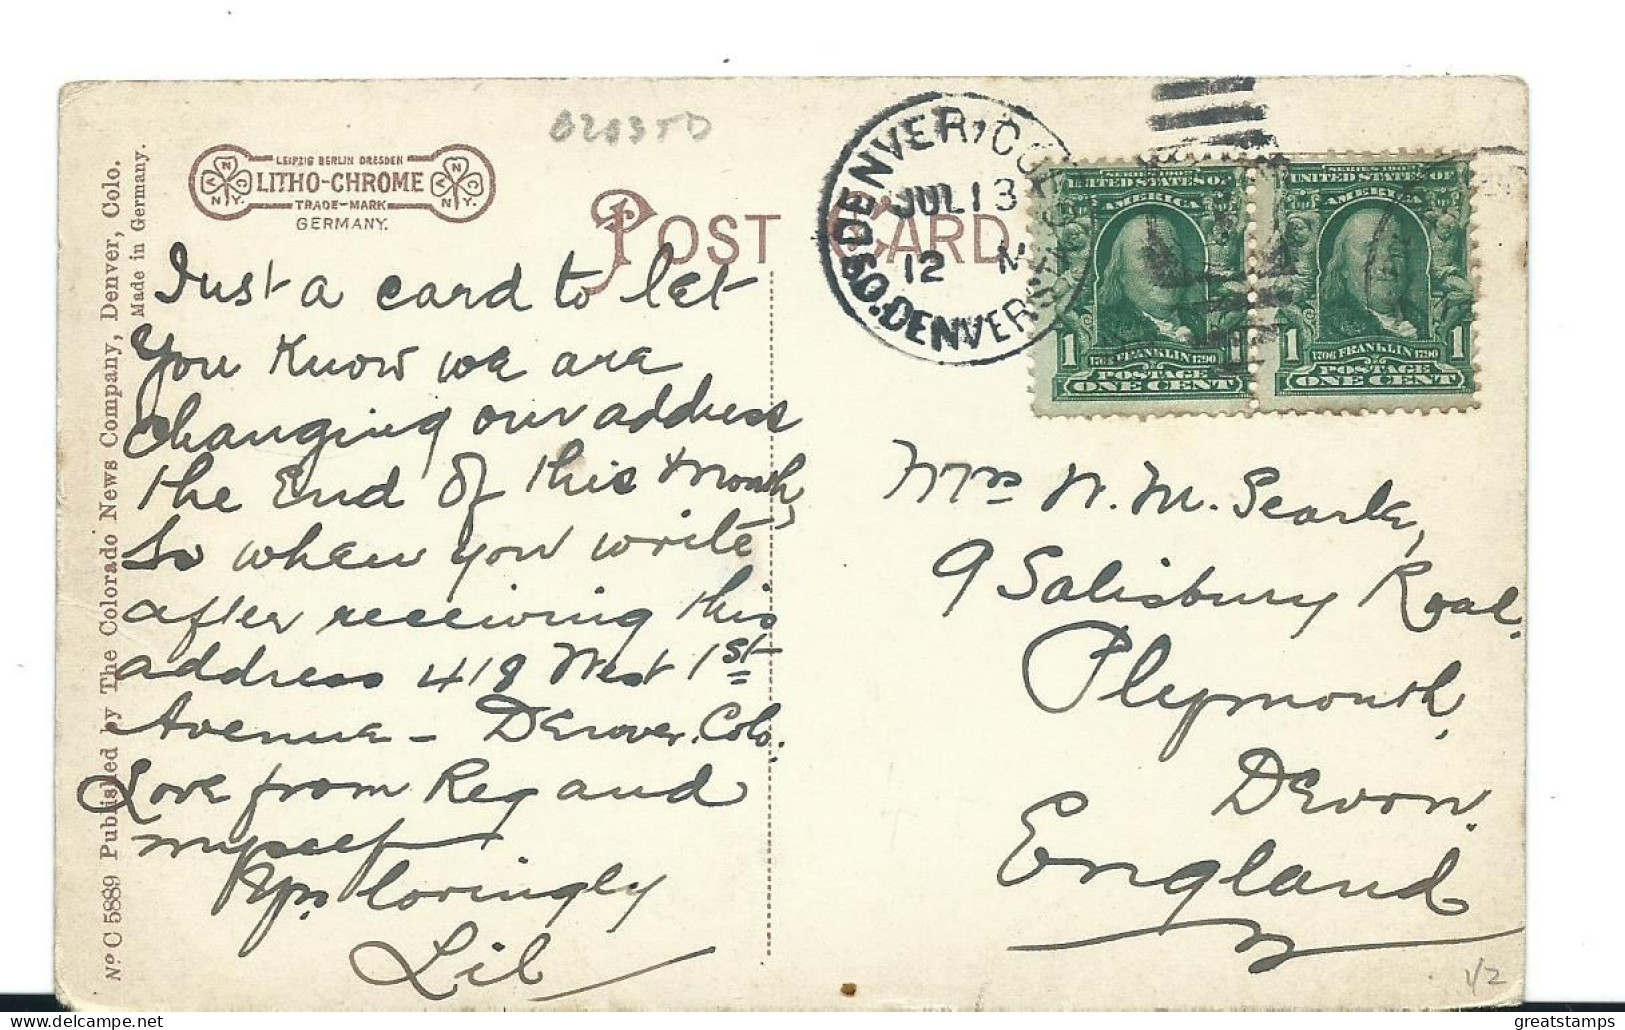 0283TD
LEIPZIG BERLIN DRESDEN
LITHO-CHROME
TRADE-MARK
GERMANY.
N N Y.
POST CARD
DENVER, COLO
JUL 13
12 M
SO. DENVER STA.
SERIES 1902
UNITED STATES OF
AMERICA
1706 FRANKLIN 1790
POSTAGE
ONE CENT
1
SERIES 1902
UNITED STATES OF
AMERICA
1 1
1706 FRANKLIN 1790
POSTAGE
ONE CENT
Just a card to let
You Know we are
changing our address
the End of this month,
So when you write
after receiving this
address 418 West 1st
Avenue - Denver. Colo.
Love from Reg and
myself
Yrs lovingly
Lil
Mrs W. M. Searle,
9 Salisbury Road.
Plymouth,
Devon.
England
No C 5889 Published by The Colorado News Company, Denver, Colo.
Made in Germany.
1/2
greatstamps